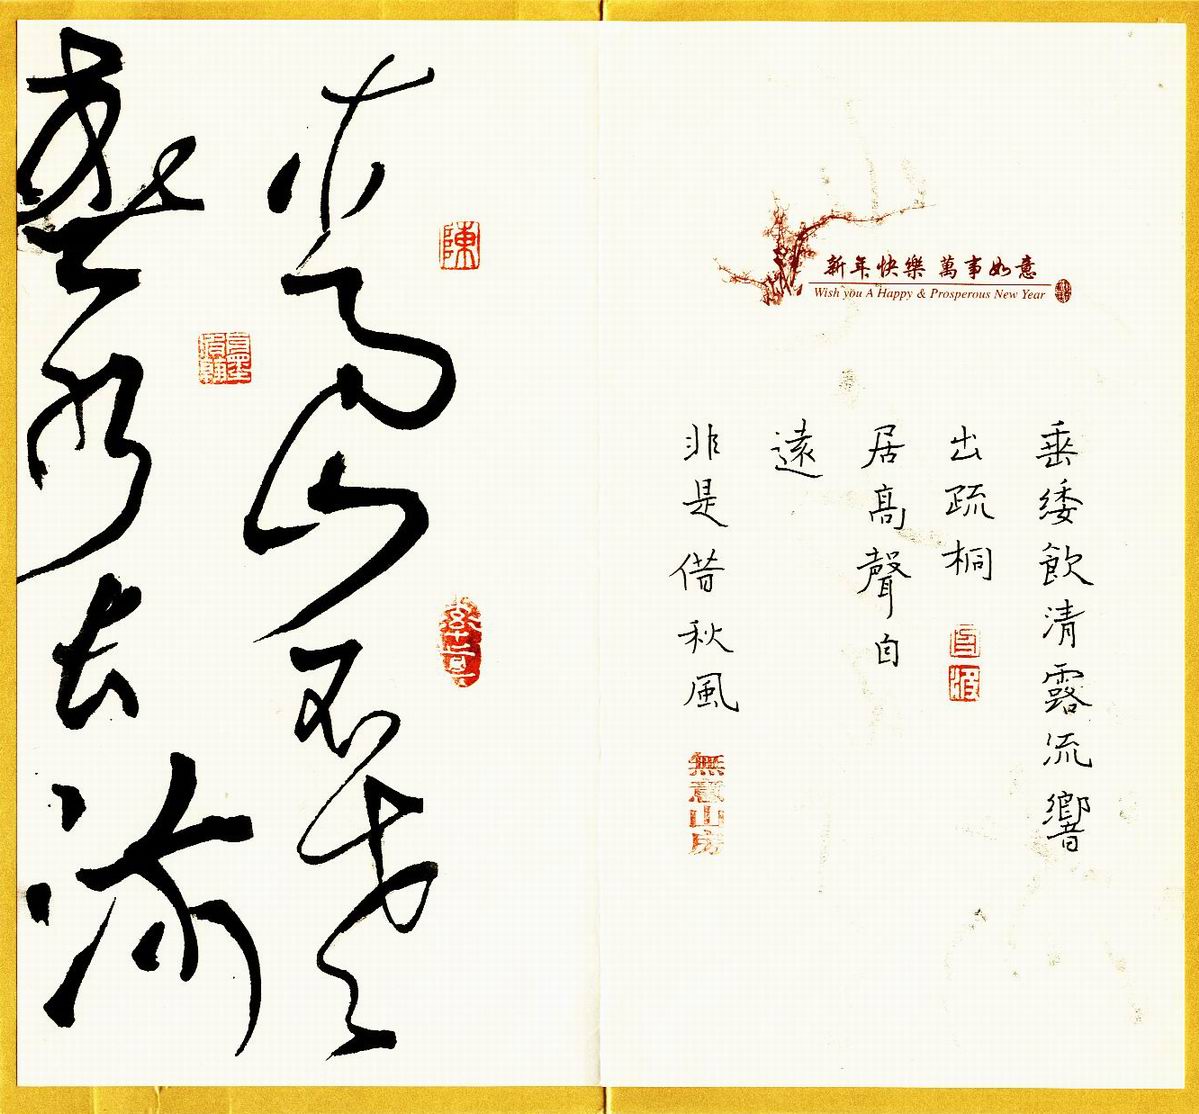 新年快樂 萬事如意
Wish you A Happy & Prosperous New Year
垂緌飲清露流響
出疏桐
居高聲自
遠
非是借秋風
無意山房
陳
高山不老
水長流